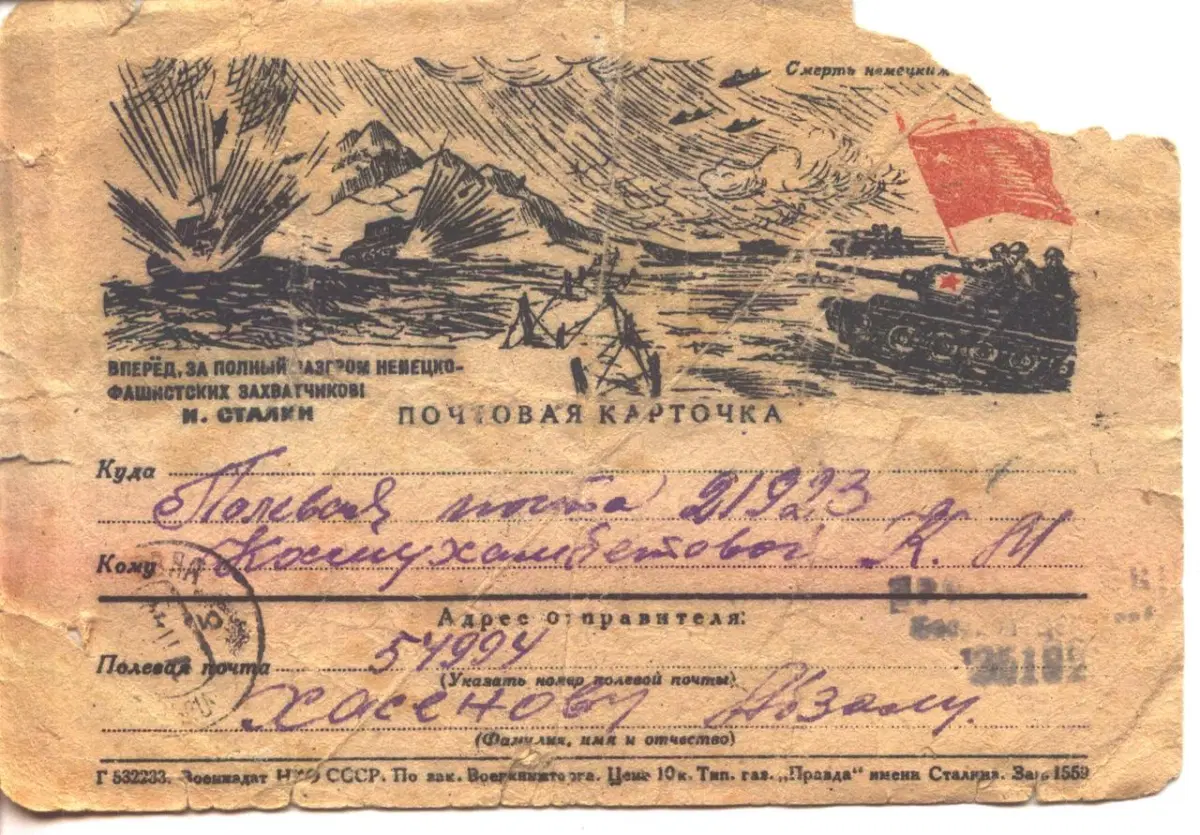 Смерть немецким
ВПЕРЁД, ЗА ПОЛНЫЙ РАЗГРОМ НЕМЕЦКО-
ФАШИСТСКИХ ЗАХВАТЧИКОВ!
И. СТАЛИН
ПОЧТОВАЯ КАРТОЧКА
Куда
Полевая почта 21923
Кому Кошмухамбетовой К. М
Адрес отправителя:
Полевая почта 54994
(Указать номер полевой почты)
Хасенову Абзалу.
(Фамилия, имя и отчество)
Г 532233. Воениздат НКО СССР. По зак. Военкниготорга. Цена 10 к. Тип. газ. „Правда" имени Сталина. Зак. 1559